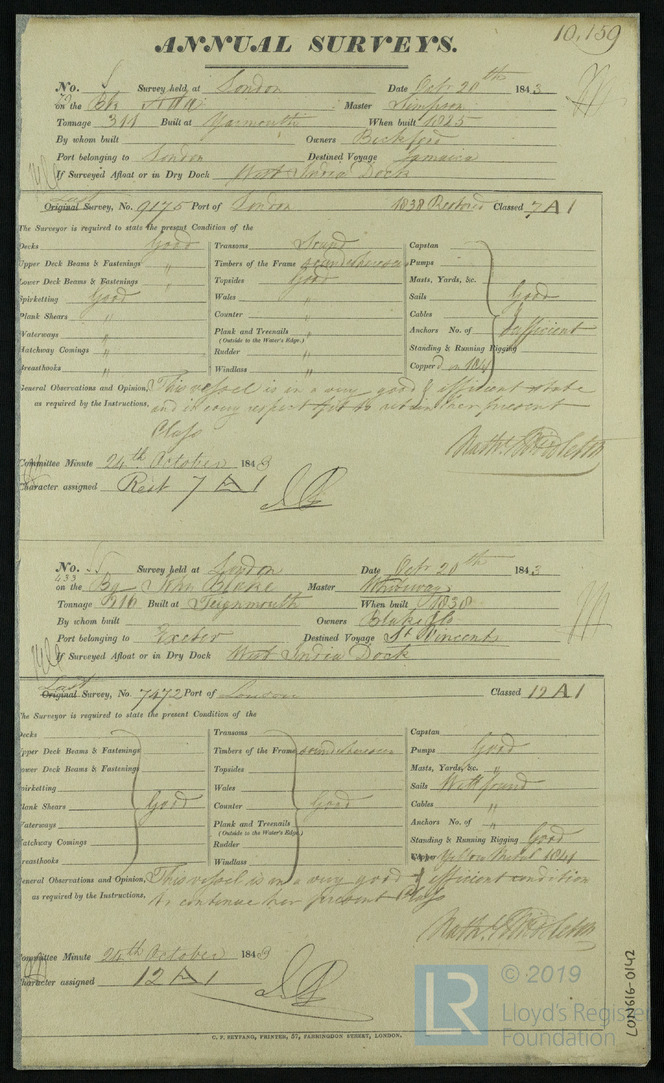 10,159
ANNUAL SURVEYS.
No. Survey held, at London Date Octr 20th 1843
on the Bk Ann Master Simpson
Tonnage 311 Built at Yarmouth When built 1825
By whom built Owners Beckford
Port belonging to London Destined Voyage Jamaica
If Surveyed Afloat or in Dry Dock West India Dock
Last
Original Survey, No. 9175 Port of London 1838 Restored Classed 7 A 1
The Surveyor is required to state the present Condition of the
Decks Good Transoms Sound Capstan
Upper Deck Beams & Fastenings " Timbers of the Frame Pumps
Lower Deck Beams & Fastenings " Topsides Good Masts, Yards, &c.
Spirketting Good Wales " Sails Good
Plank Shears " Counter " Cables &
Waterways " Plank and Treenails " Anchors No. of Sufficient
(Outside to the Water's Edge.)
Hatchway Comings " Rudder " Standing & Running Rigging
Breasthooks " Windlass " Copperd in 1841
General Observations and Opinion, This vessel is in a very good & efficient state
as required by the Instructions, and in every respect fit to retain her present
Class
Committee Minute 24th October 1843
Character assigned Rest 7 A 1
No. Survey held at London Date Octr 20th 1843
433
on the Bg John Blake Master
Tonnage Built at Teignmouth When built 1838
By whom built Owners Blake & Co
Port belonging to Exeter Destined Voyage St Vincent
If Surveyed Afloat or in Dry Dock West India Dock
Last
Original Survey, No. 7472 Port of London Classed 12 A 1
The Surveyor is required to state the present Condition of the
Decks Transoms Capstan
Upper Deck Beams & Fastenings Timbers of the Frame Pumps Good
Lower Deck Beams & Fastenings Topsides Masts, Yards, &c. "
Spirketting Wales Sails Well found
Plank Shears Good Counter Good Cables "
Waterways Plank and Treenails Anchors No. of "
(Outside to the Water's Edge.)
Hatchway Comings Rudder Standing & Running Rigging Good
Breasthooks Windlass Copper Yellow Metal 1841
General Observations and Opinion, This vessel is in a very good & efficient condition
as required by the Instructions, to continue her present Class
Committee Minute 24th October 1843
Character assigned 12 A 1
C. F. SEYFANG, PRINTER, 57, FARRINGDON STREET, LONDON.
LR © 2019
Lloyd's Register
Foundation
LON616-0142